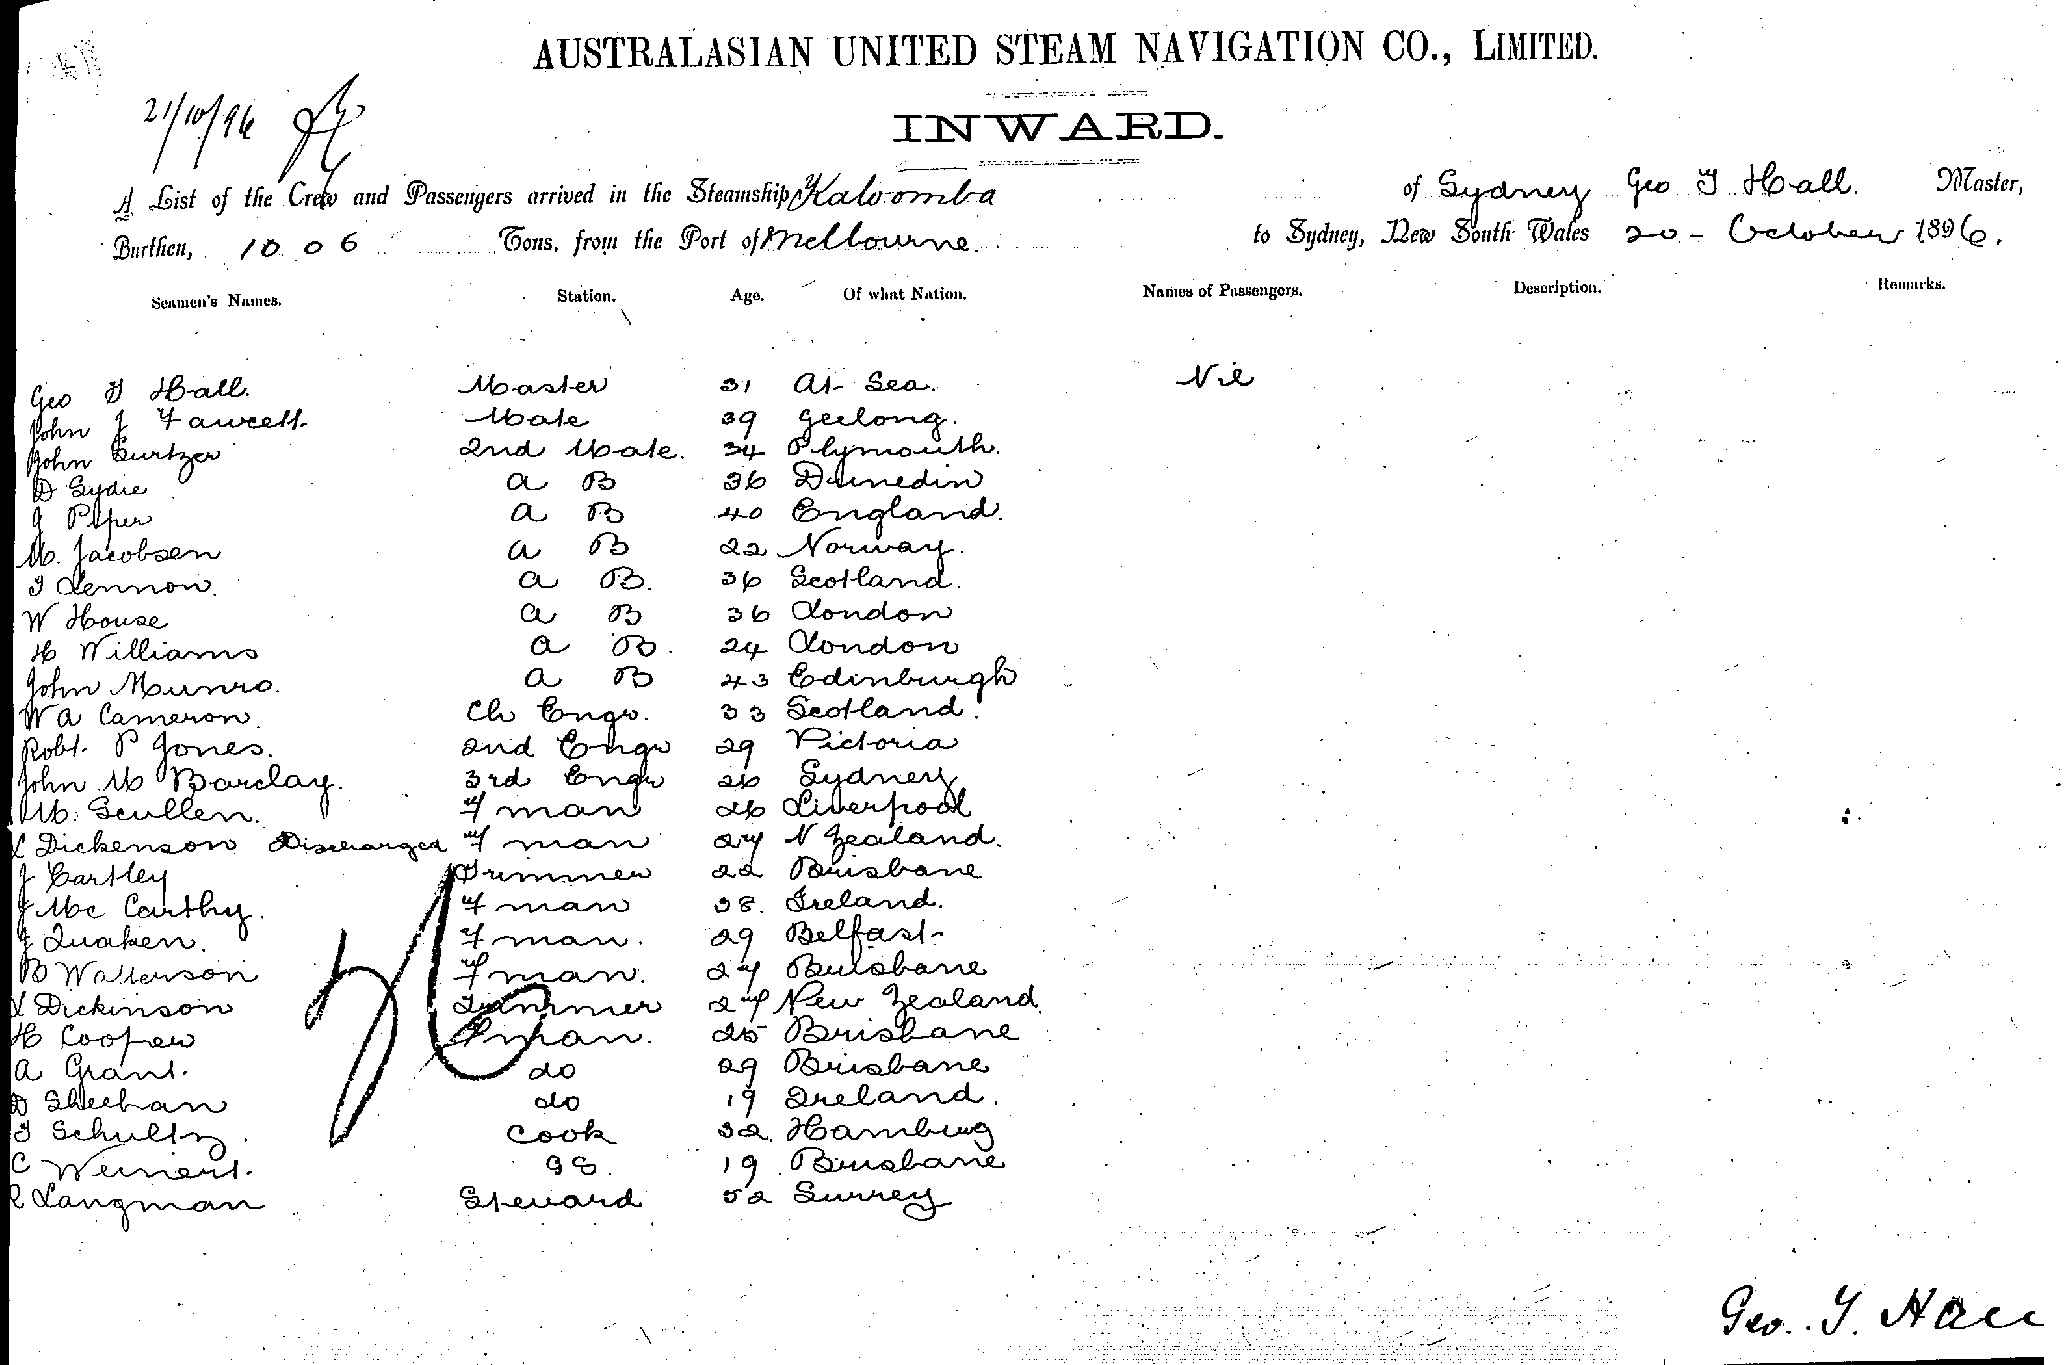 AUSTRALASIAN UNITED STEAM NAVIGATION CO., LIMITED.
21/10/96
INWARD.
A List of the Crew and Passengers arrived in the Steamship Kaloomba of Sydney Geo T Hall. Master,
Burthen, 1006 Tons, from the Port of Melbourne to Sydney, New South Wales 20 - October 1896.
Seamen's Names. Station. Age. Of what Nation. Names of Passengers. Description. Remarks.
Geo T Hall. Master 31 At Sea. Nil
John J Fawcett. Mate 39 Geelong.
John Gurtzer 2nd Mate. 34 Plymouth.
D Sydie A B 36 Dunedin
J Piper A B 40 England.
M. Jacobsen A B 22 Norway.
T Lennon. A B. 36 Scotland.
W House A B 36 London
H Williams A B. 24 London
John Munro. A B 43 Edinburgh
W A Cameron. Ch Engr. 33 Scotland.
Robt. P Jones. 2nd Engr 29 Victoria
John M Barclay. 3rd Engr 26 Sydney
M. Scullen. F man 26 Liverpool
L Dickenson Discharged F man 27 N Zealand.
J Cartley Trimmer 22 Brisbane
J Mc Carthy. F man 38. Ireland.
J Quaken. F man. 29 Belfast
B Watterson F man. 27 Brisbane
L Dickinson Trimmer 27 New Zealand.
H Cooper F man. 25 Brisbane
A Grant. do 29 Brisbane
D Sheehan do 19 Ireland.
T Schultz. Cook 32. Hamburg
C Weinert. 19 Brisbane
R Langman Steward 52 Surrey
Geo. T. Hall